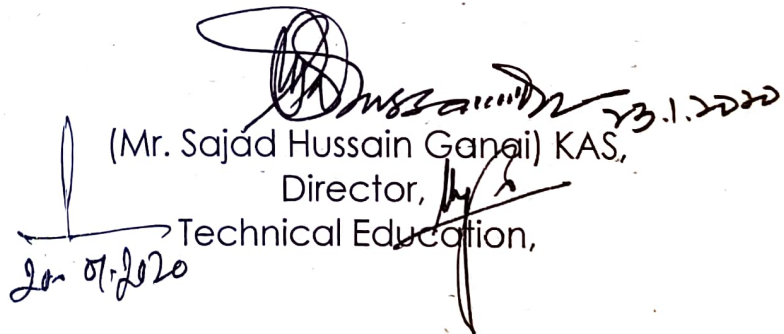 23.1.2020
(Mr. Sajad Hussain Ganai) KAS,
Director,
Technical Education,